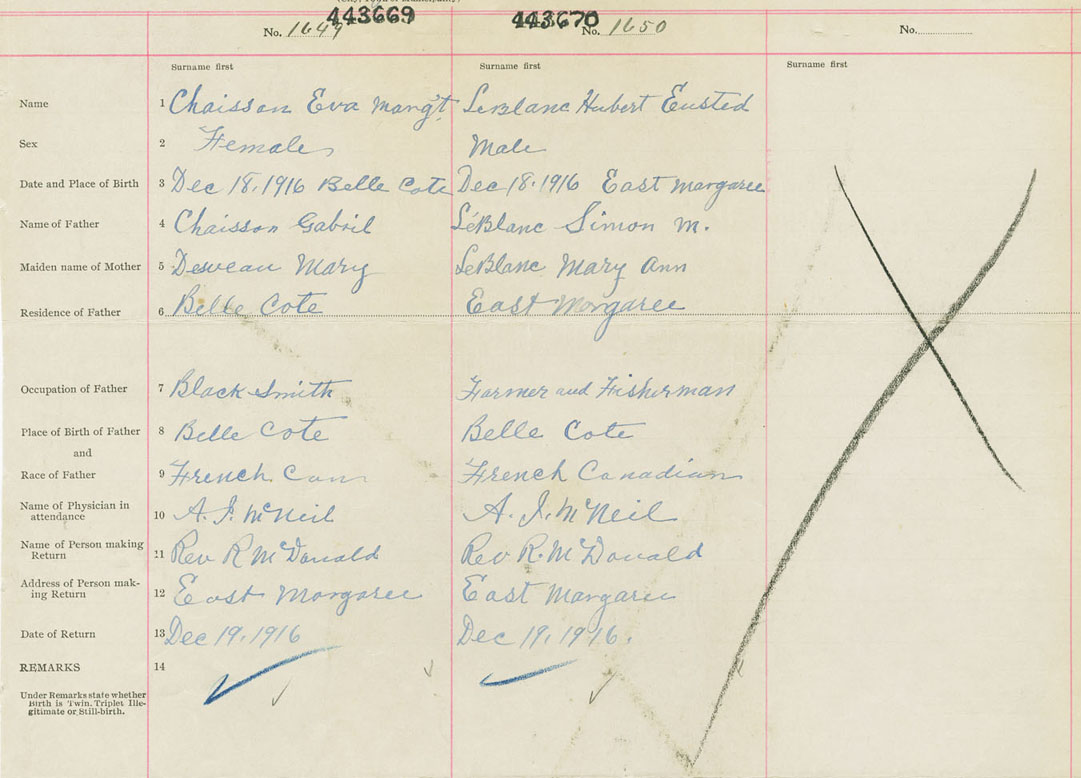 443669 443670
No. 1649 No. 1650 No.
Surname first Surname first Surname first
Name 1 Chaisson Eva Marg't. LeBlanc Hubert Eusted
Sex 2 Female Male
Date and Place of Birth 3 Dec 18, 1916 Belle Cote Dec 18, 1916 East Margaree
Name of Father 4 Chaisson Gabril LeBlanc Simon M.
Maiden name of Mother 5 Deveau Mary LeBlanc Mary Ann
Residence of Father 6 Belle Cote East Margaree
Occupation of Father 7 Black Smith Farmer and Fisherman
Place of Birth of Father 8 Belle Cote Belle Cote
and
Race of Father 9 French Can French Canadian
Name of Physician in
attendance 10 A. J. McNeil A. J. McNeil
Name of Person making
Return 11 Rev R McDonald Rev R. McDonald
Address of Person mak-
ing Return 12 East Margaree East Margaree
Date of Return 13 Dec 19, 1916 Dec 19, 1916.
REMARKS 14
Under Remarks state whether
Birth is Twin, Triplet Ille-
gitimate or Still-birth.